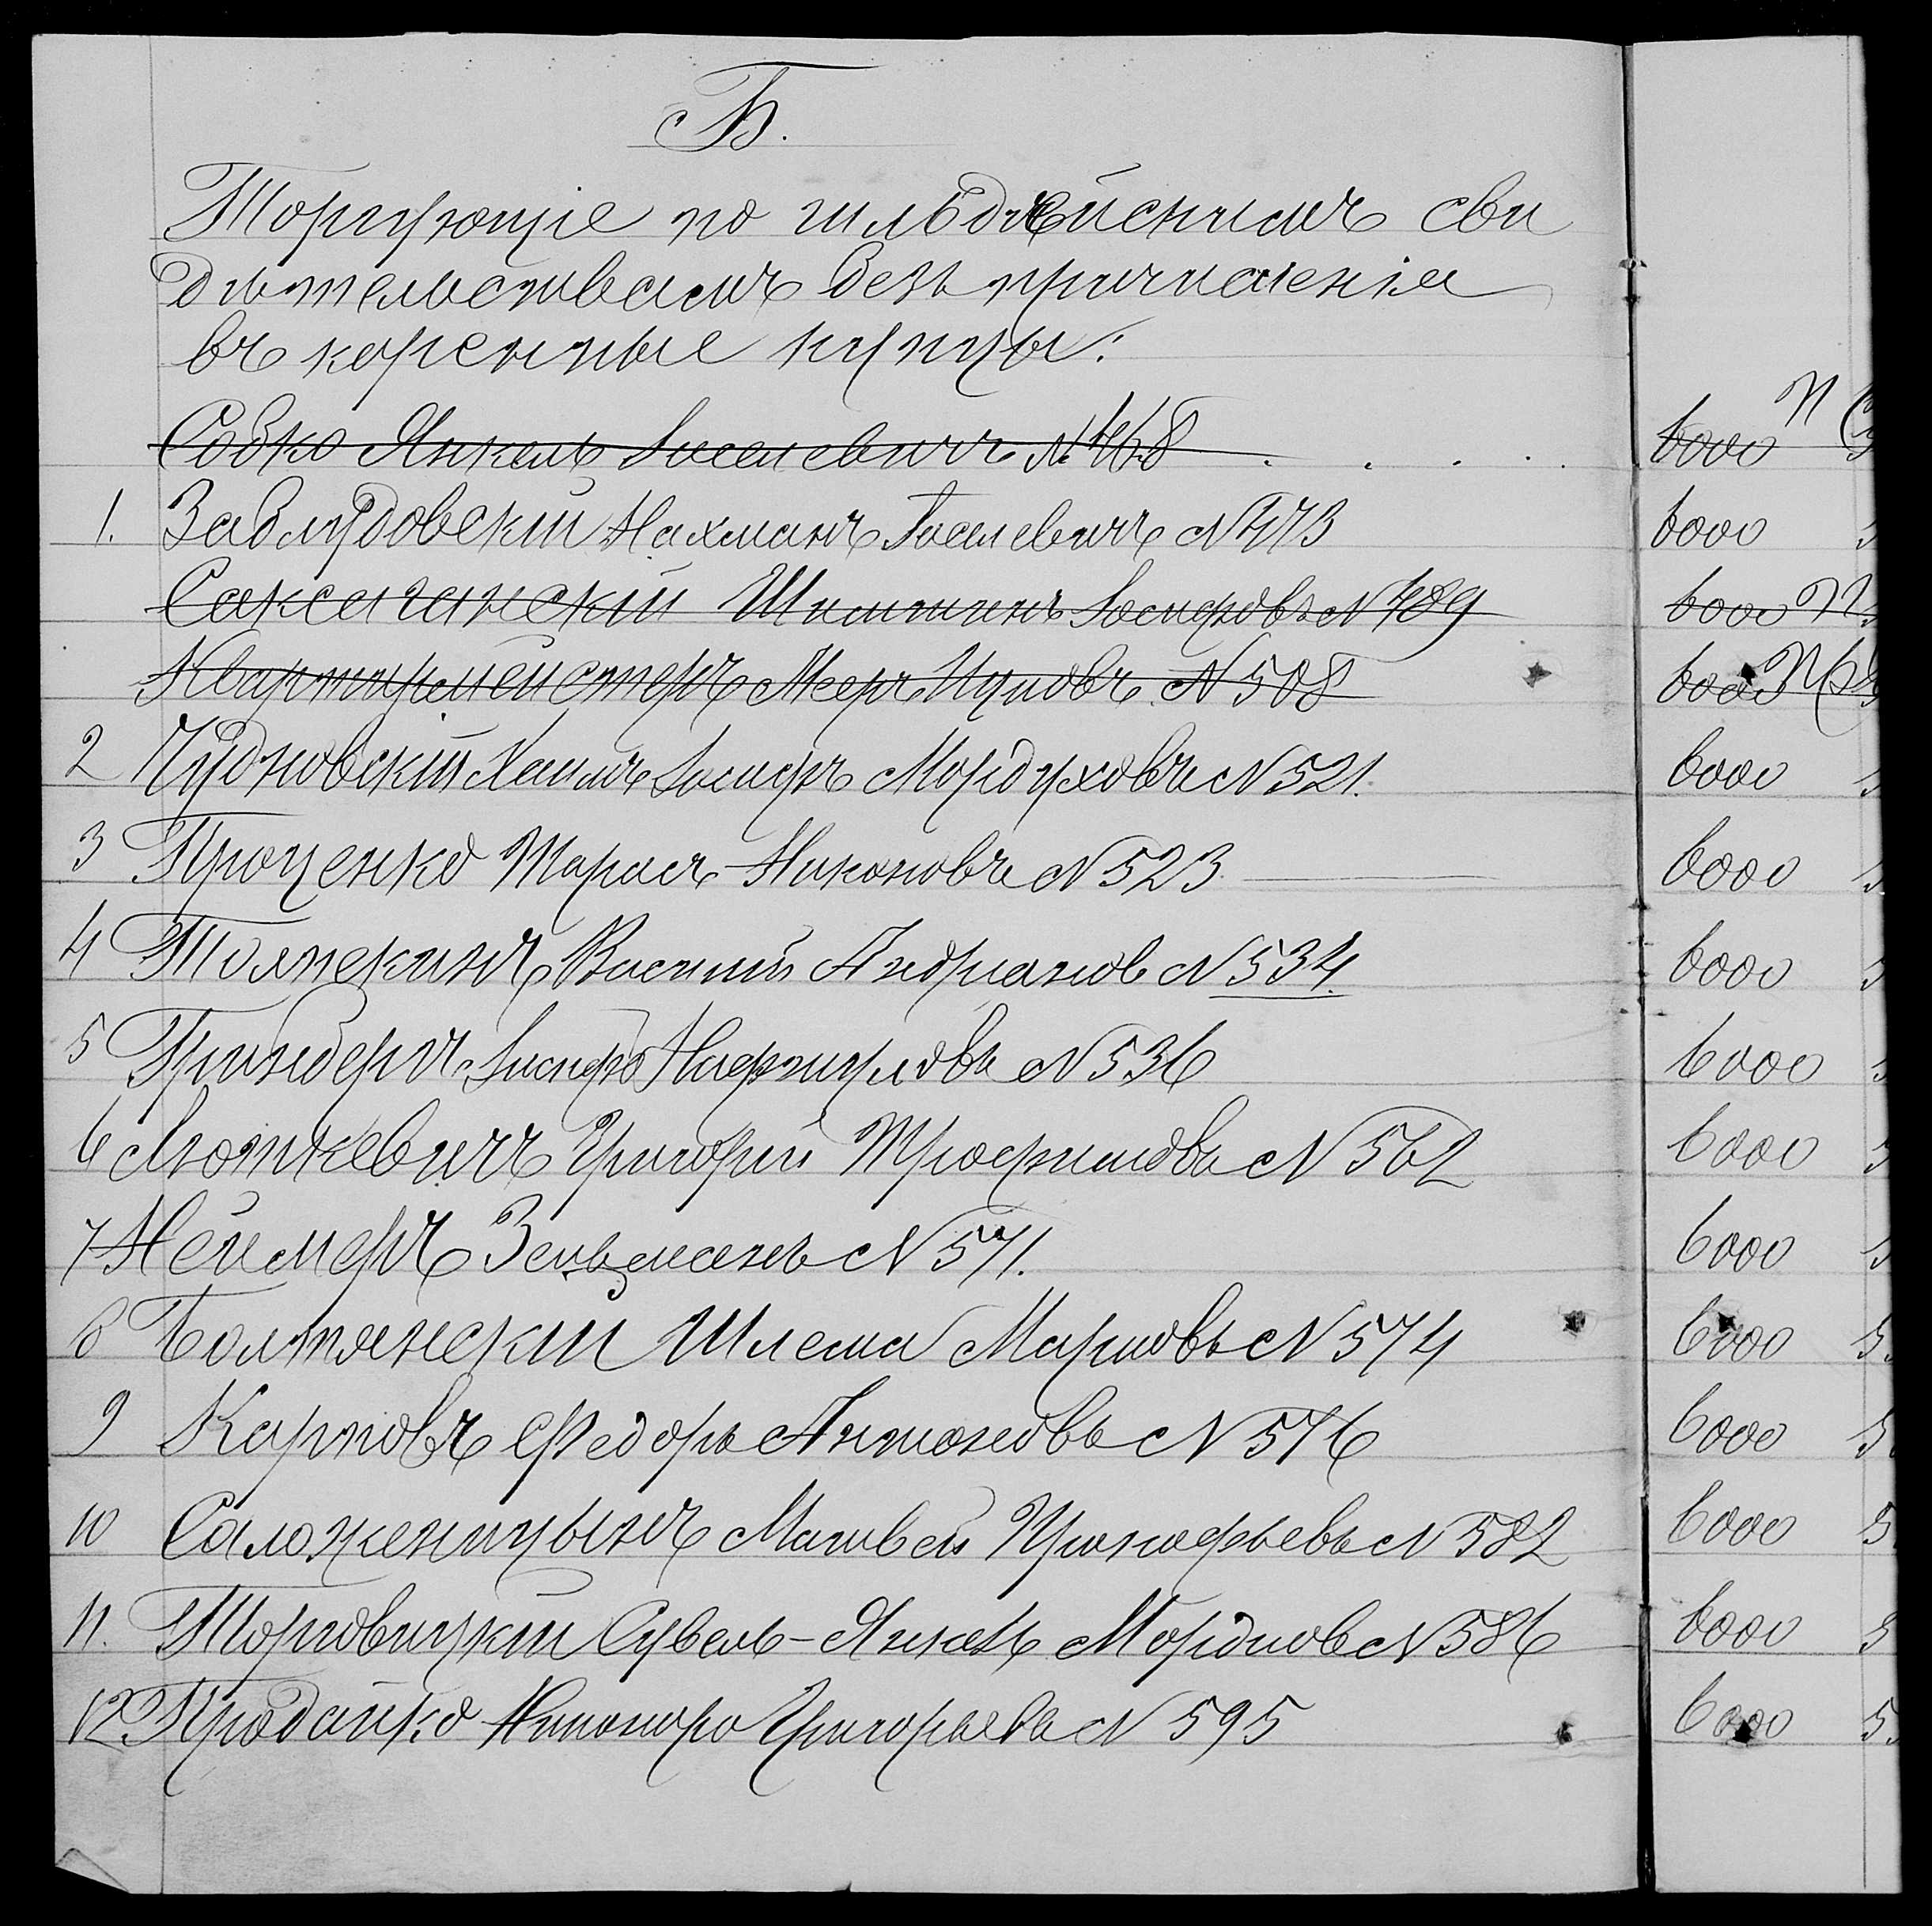 Б.
Торгующіе по гильдейскимъ сви
дѣтельствамъ безъ причисленія
въ коренные купцы:
Собко Янкель Іоселевичъ №468 . . . . . 6000 П
1. Заблудовскій Нахманъ Іоселевичъ №473 6000
Саксаганскій Шлиомъ Іосифовъ №489 6000 П
Квартирмейстеръ Меръ Ицковъ №508 6000 П
2 Чудновскій Хаимъ Іосифъ Мордуховъ №521. 6000
3 Проценко Тарасъ Никоновъ №523 6000
4 Василій Андріановъ №534. 6000
5 Гринбергъ Іосифъ Нафтуловъ №536 6000
6 Люткевичъ Григорій Трофимовъ №562 6000
7 Неймеръ Зельманъ №571. 6000
8 Болтянскій Шлема Марковъ №574 6000
9 Карповъ Федоръ Антоновъ №576 6000
10 Саложеницынъ Матвей Прокофьевъ №582 6000
11. Торговицкій Сувель-Янкель Мордковъ №586 6000
12. Продайко Никоноръ Григорьевъ №595 6000